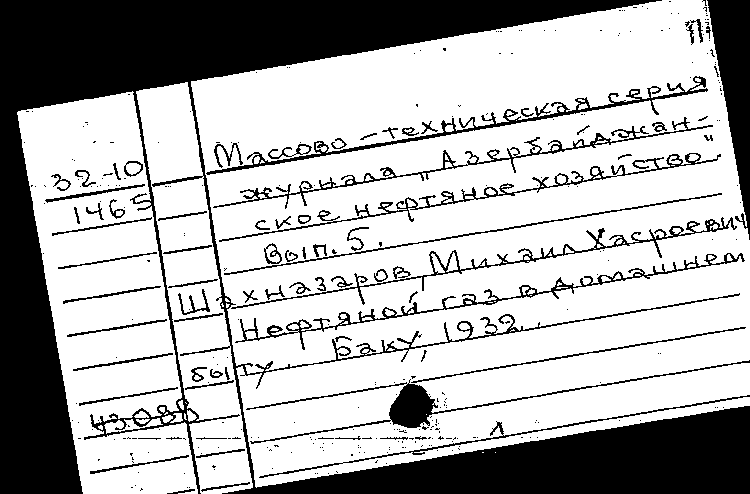 32-10
1465
Массово-техническая серия
журнала „Азербайджан-
ское нефтяное хозяйство"
Вып. 5.
Шахназаров, Михаил Хасроевич
Нефтяной газ в домашнем
быту. Баку, 1932.
43088
1